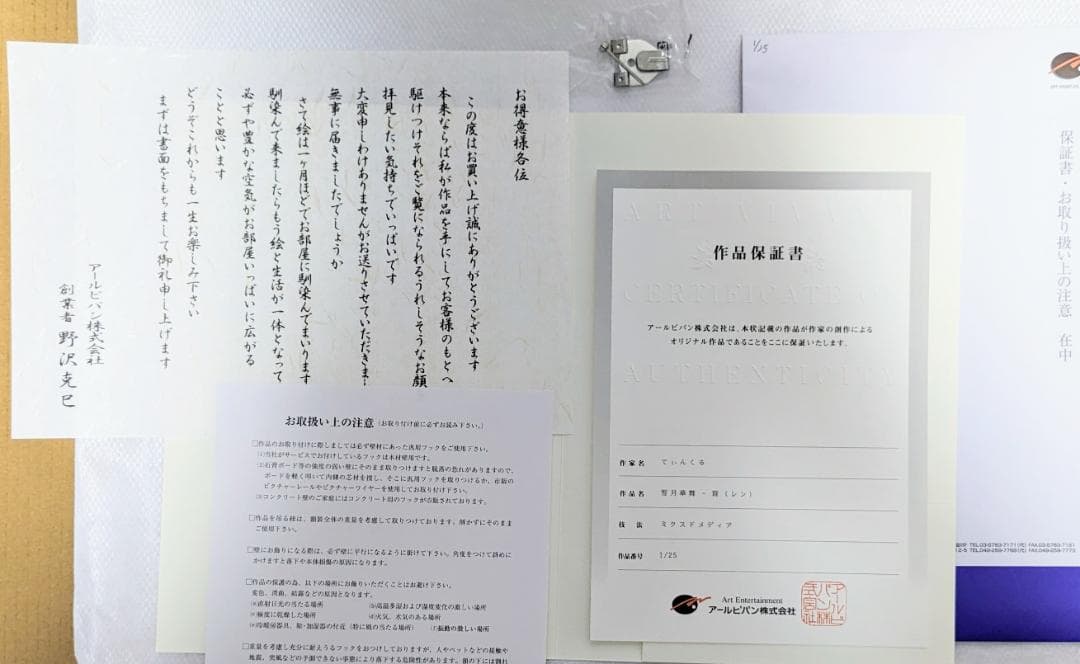 お得意様各位
この度はお買い上げ誠にありがとうございます
本来ならば私が作品を手にしてお客様のもとへ
駆けつけそれをご覧になられるうれしそうなお顔
拝見したい気持ちでいっぱいです
大変申しわけありませんがお送りさせていただきまし
無事に届きましたでしょうか
さて絵は一ヶ月ほどでお部屋に馴染んでまいります
馴染んで来ましたらもう絵と生活が一体となって
必ずや豊かな空気がお部屋いっぱいに広がる
ことと思います
どうぞこれからも一生お楽しみ下さい
まずは書面をもちまして御礼申し上げます
アールビバン株式会社
創業者 野沢克巳
お取扱い上の注意(お取り付け前に必ずお読み下さい。)
□作品のお取り付けに際しましては必ず壁材にあった汎用フックをご使用下さい。
⑴当社がサービスでお付けしているフックは木材壁用です。
⑵石膏ボード等の強度の弱い壁にそのまま取りつけますと脱落の恐れがありますので、
ボードを軽く叩いて内側の芯材を探し、そこに汎用フックを取りつけるか、市販の
ピクチャーレールやピクチャーワイヤーを使用してお取り付け下さい。
⑶コンクリート壁のご家庭にはコンクリート用のフックが市販されております。
□作品を吊る紐は、額装全体の重量を考慮して取りつけております。解かずにそのまま
ご使用下さい。
□壁にお飾りになる際は、必ず壁に平行になるように掛けて下さい。角度をつけて斜めに
かけますと落下や本体損傷の原因になります。
□作品の保護の為、以下の場所にお飾りいただくことはお避け下さい。
変色、汚損、結露などの原因となります。
⒜直射日光の当たる場所 ⒝高温多湿および温度変化の激しい場所
⒞極度に乾燥した場所 ⒟火気、水気のある場所
⒠冷暖房器具、除・加湿器の付近(特に風の当たる場所) ⒡振動の激しい場所
□重量を考慮し充分に耐えうるフックをおつけしておりますが、人やペットなどの接触や
地震、突風などの予測できない事態により落下する危険性があります。額の下には割れ
ART VIVANT
作品保証書
CERTIFICATE OF
アールビバン株式会社は、本状記載の作品が作家の創作による
オリジナル作品であることをここに保証いたします。
AUTHENTICITY
作家名 てぃんくる
作品名 智月華舞 - 蓮 (レン)
技法 ミクスドメディア
作品番号 1/25
Art Entertainment
アールビバン株式会社
1/25
保証書・お取り扱い上の注意 在中